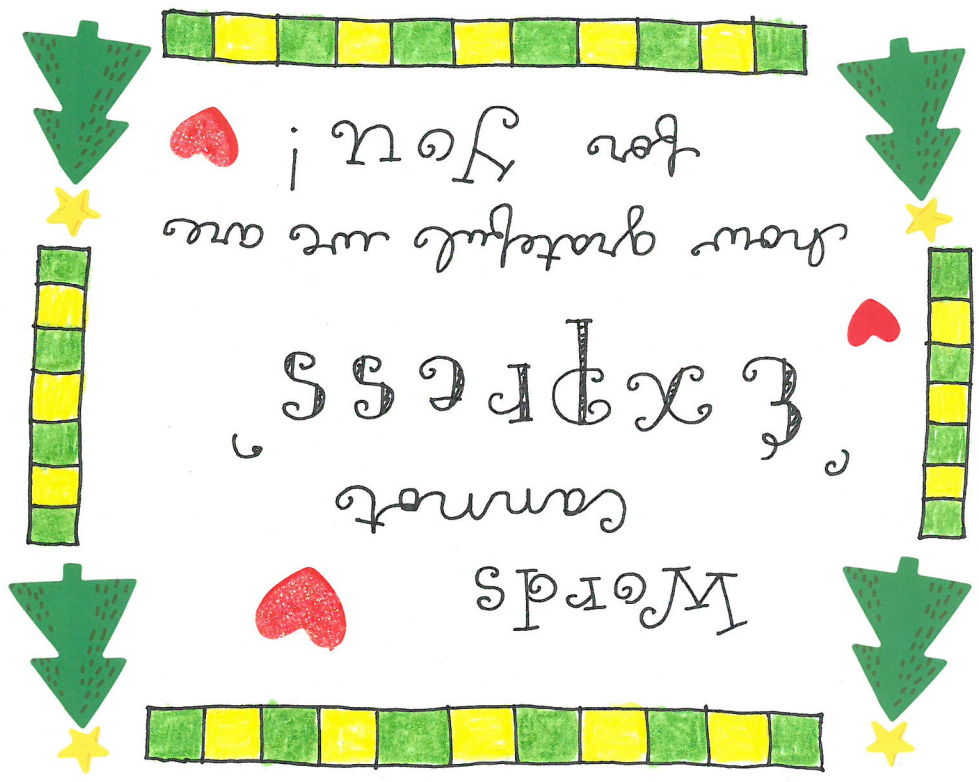 Words
cannot
‘Express’
how grateful we are
for you!